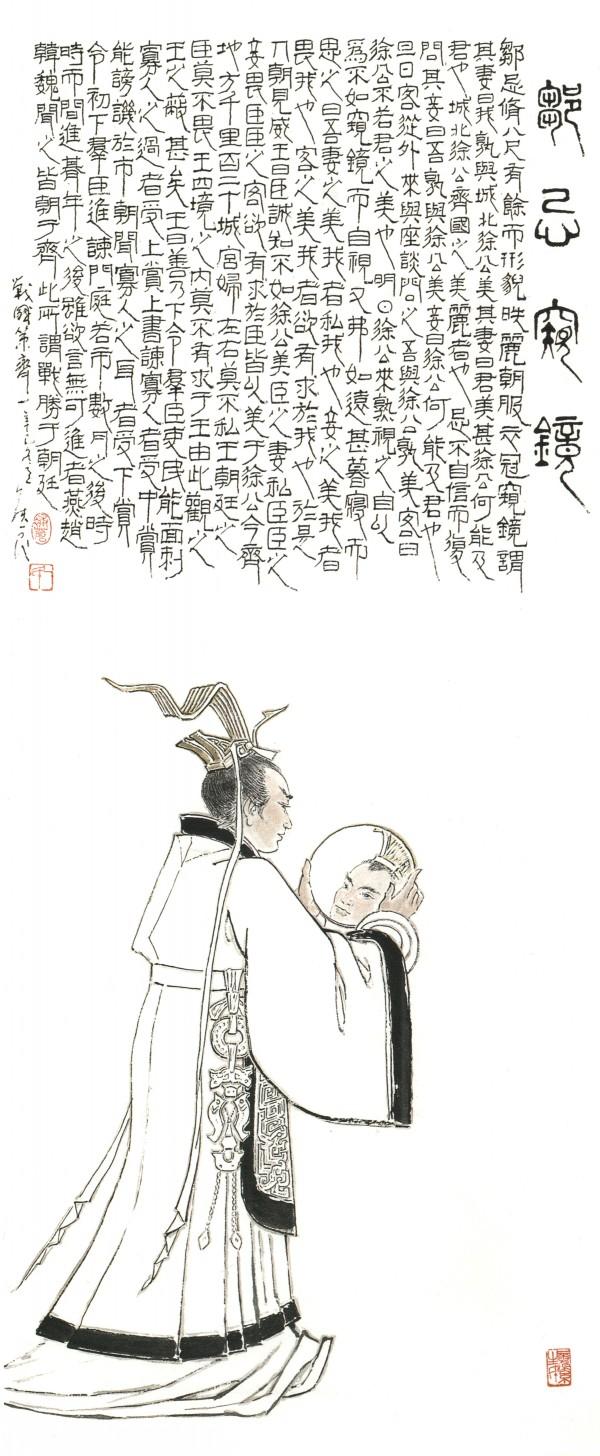 鄒忌窺鏡
鄒忌脩八尺有餘而形貌昳麗朝服衣冠窺鏡謂
其妻曰我孰與城北徐公美其妻曰君美甚徐公何能及
君也城北徐公齊國之美麗者也忌不自信而復
問其妾曰吾孰與徐公美妾曰徐公何能及君也
旦日客從外來與座談問之吾與徐公孰美客曰
徐公不若君之美也明日徐公來孰視之自以
爲不如窺鏡而自視又弗如遠甚暮寢而
思之曰吾妻之美我者私我也妾之美我者
畏我也客之美我者欲有求於我也於是
入朝見威王曰臣誠知不如徐公美臣之妻私臣臣之
妾畏臣臣之客欲有求於臣皆以美于徐公今齊
地方千里百二十城宮婦左右莫不私王朝廷之
臣莫不畏王四境之内莫不有求于王由此觀之
王之蔽甚矣王曰善乃下令羣臣吏民能面刺
寡人之過者受上賞上書諫寡人者受中賞
能謗譏於市朝聞寡人之耳者受下賞
令初下羣臣進諫門庭若市數月之後時
時而間進暮年之後雖欲言無可進者燕趙
韓魏聞之皆朝于齊此所謂戰勝于朝廷
戰國策齊一